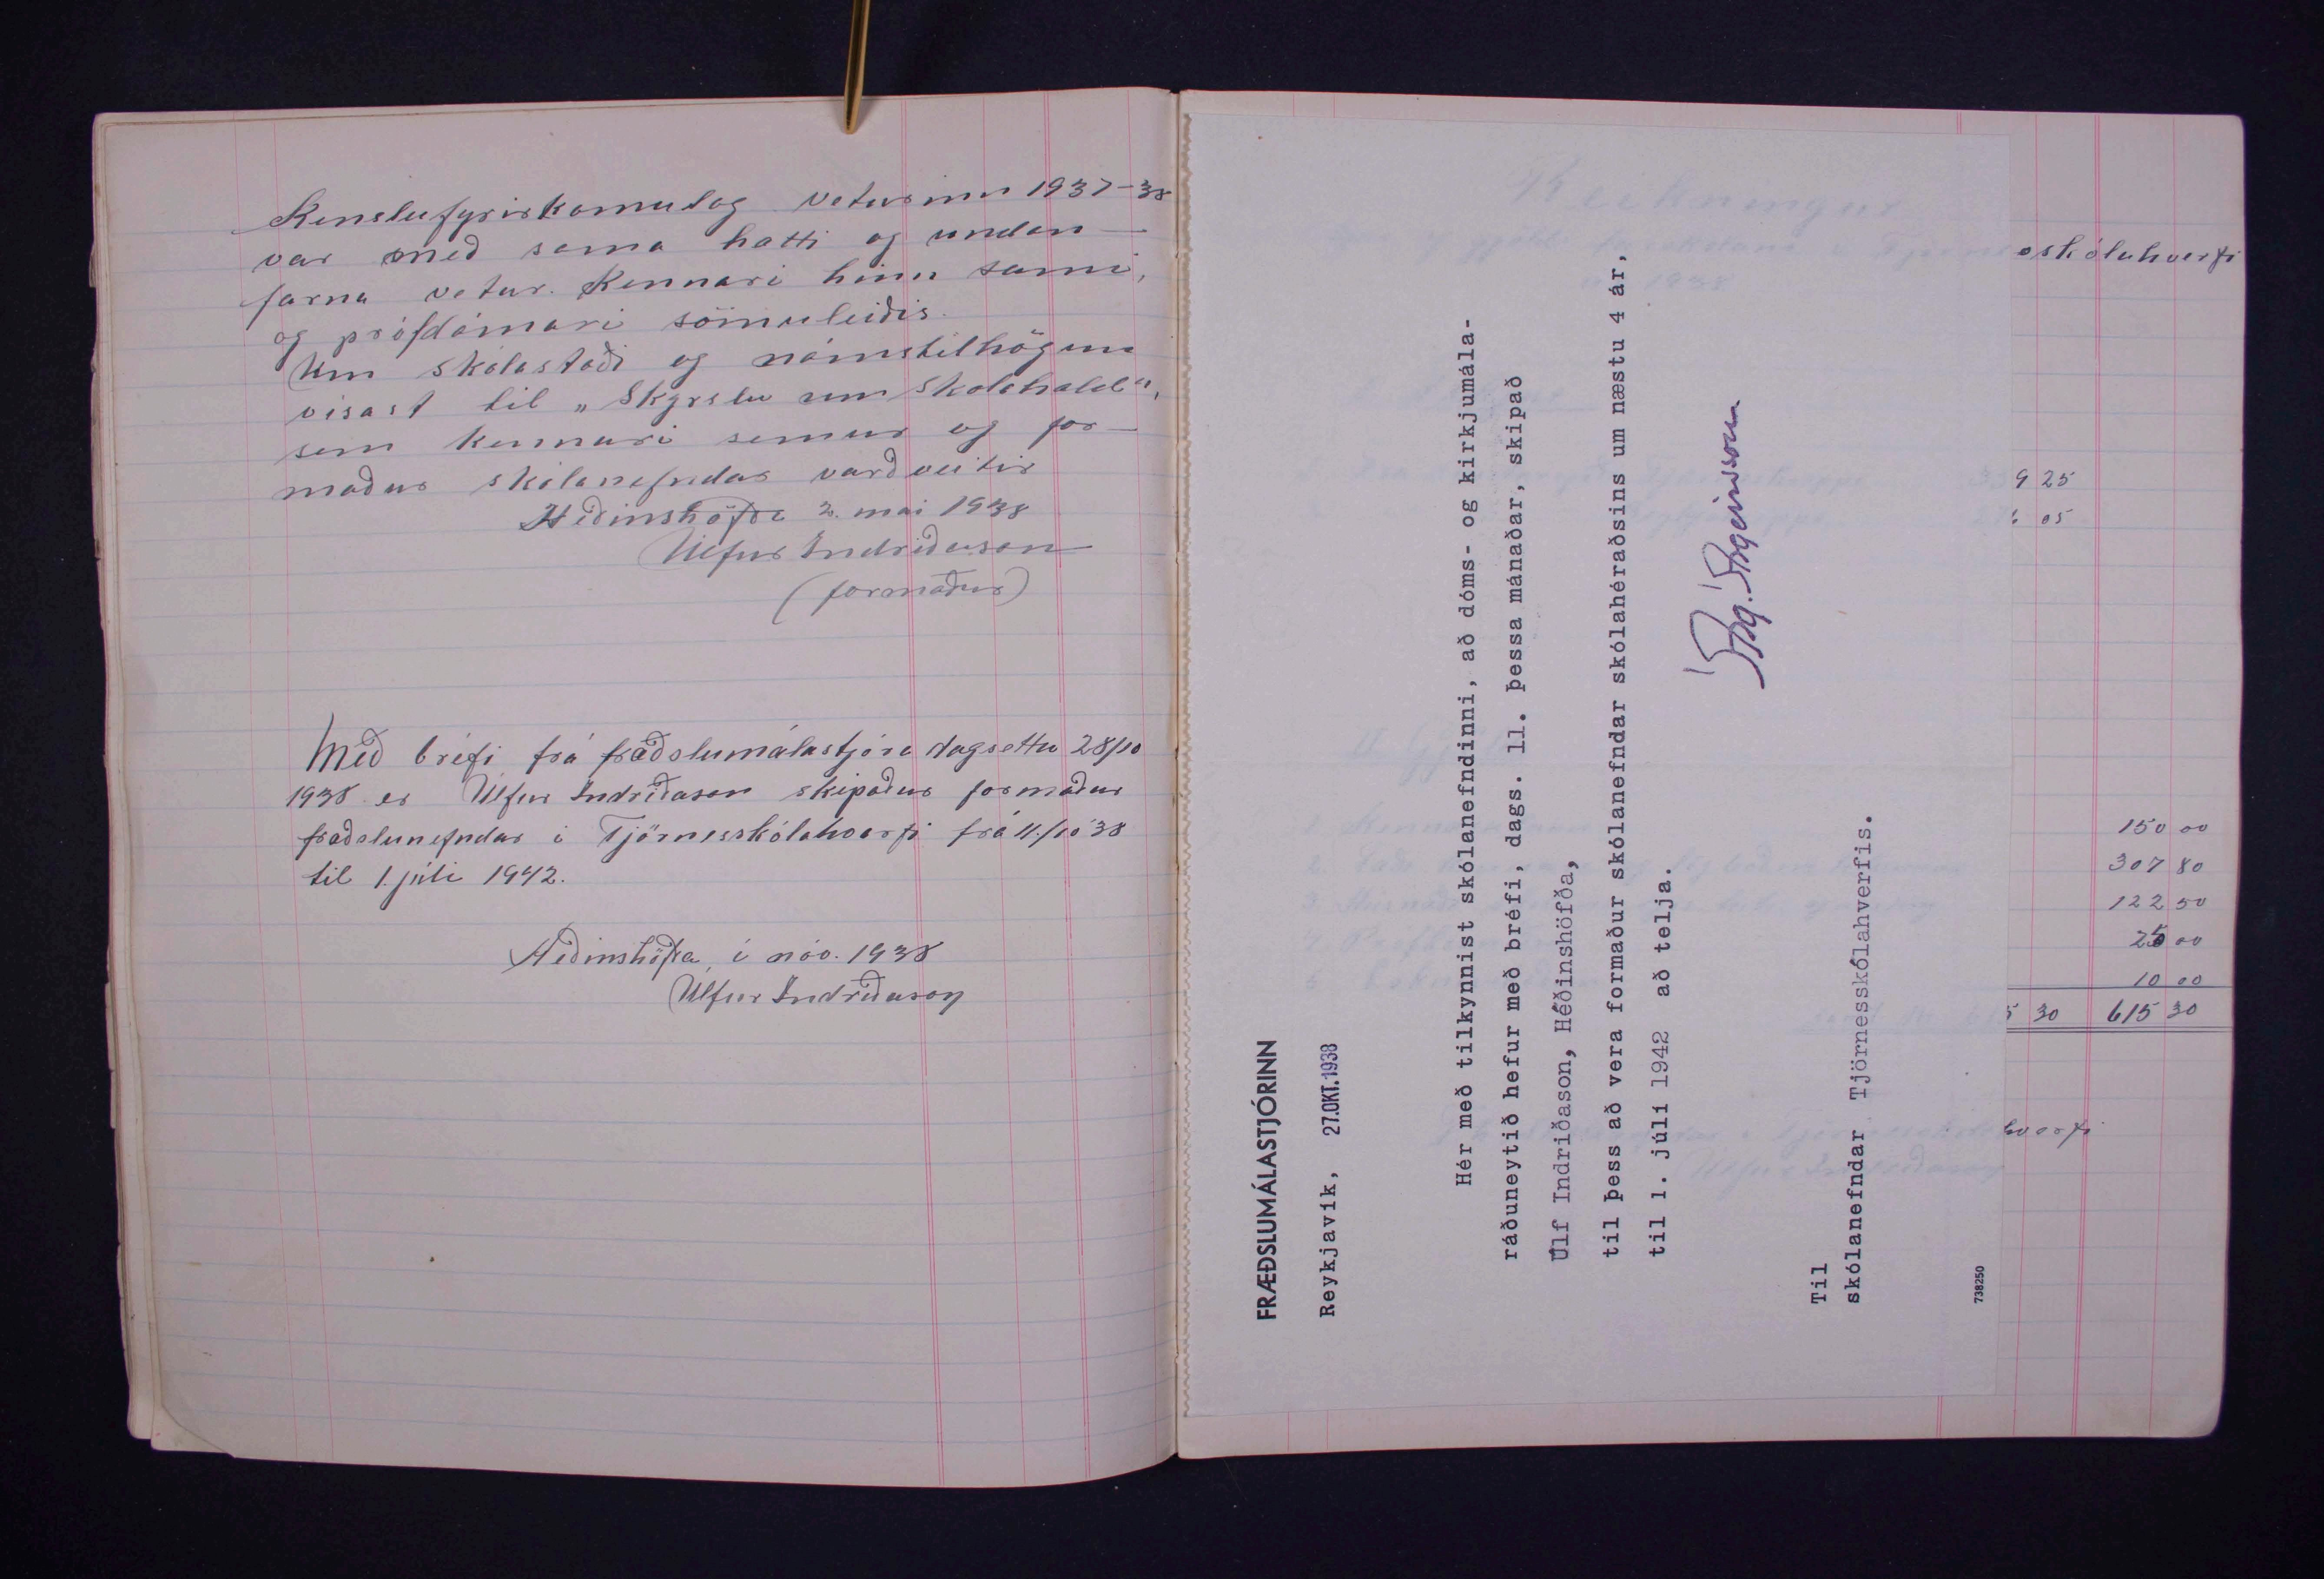 Kenslufyrirkomulag veturinn 1937-38
var með sama hætti og undan-
farna vetur. Kennari hinn sami,
og prófdómari sömuleiðis.
Um skólastaði og námstilhögun
vísast til „Skýrslu um skólahald",
sem kennari semur og for-
maður skólanefndar varðveitir
Héðinshöfða 2. maí 1938
Úlfur Indriðason
(formaður)
Með bréfi frá fræðslumálastjóra dagsettu 28/10
1938 er Úlfur Indriðason skipaður formaður
fræðslunefndar í Tjörnesskólahverfi frá 11./10 '38
til 1. júlí 1942.
Héðinshöfða, í nóv. 1938
Úlfur Indriðason
FRÆÐSLUMÁLASTJÓRINN
Reykjavík, 27.OKT.1938
Hér með tilkynnist skólanefndinni, að dóms- og kirkjumála-
ráðuneytið hefur með bréfi, dags. 11. þessa mánaðar, skipað
Úlf Indriðason, Héðinshöfða,
til þess að vera formaður skólanefndar skólahéraðsins um næstu 4 ár,
til 1. júlí 1942 að telja.
Ásg. Ásgeirsson
Til
skólanefndar Tjörnesskólahverfis.
738250
skólahverfi
9 25
05
150 00
307 80
122 50
25 00
10 00
5 30 615 30
hverfi